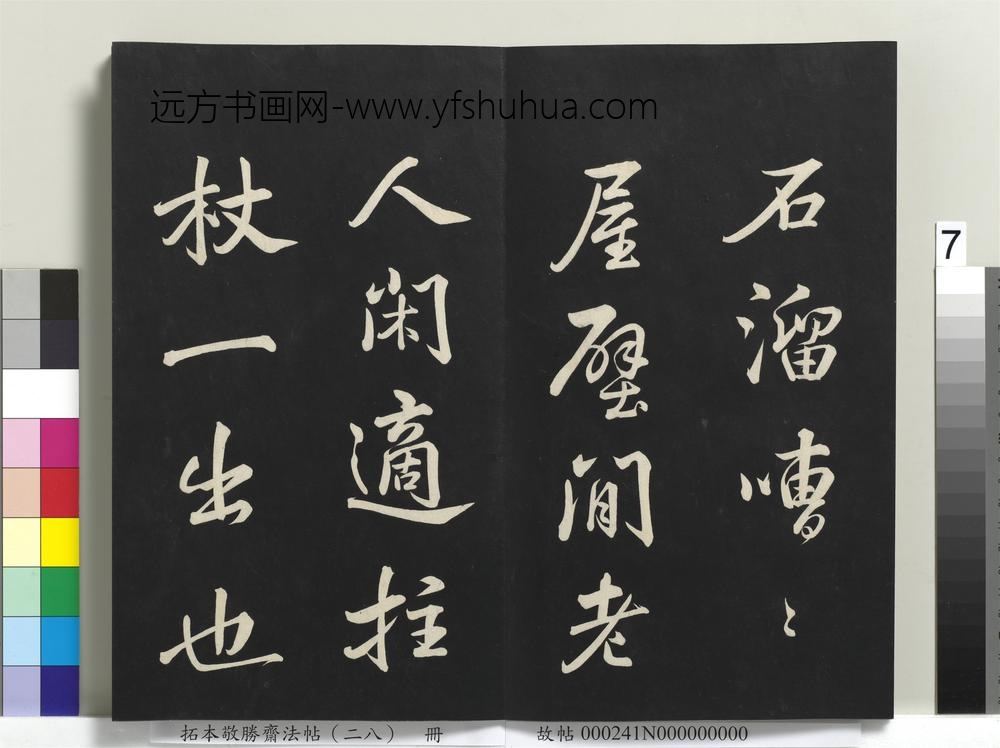 远方书画网-www.yfshuhua.com
石溜嘈〻
屋壁間老
人闲適拄
杖一出也
7
拓本敬勝齋法帖（二八） 冊
故帖 000241N000000000